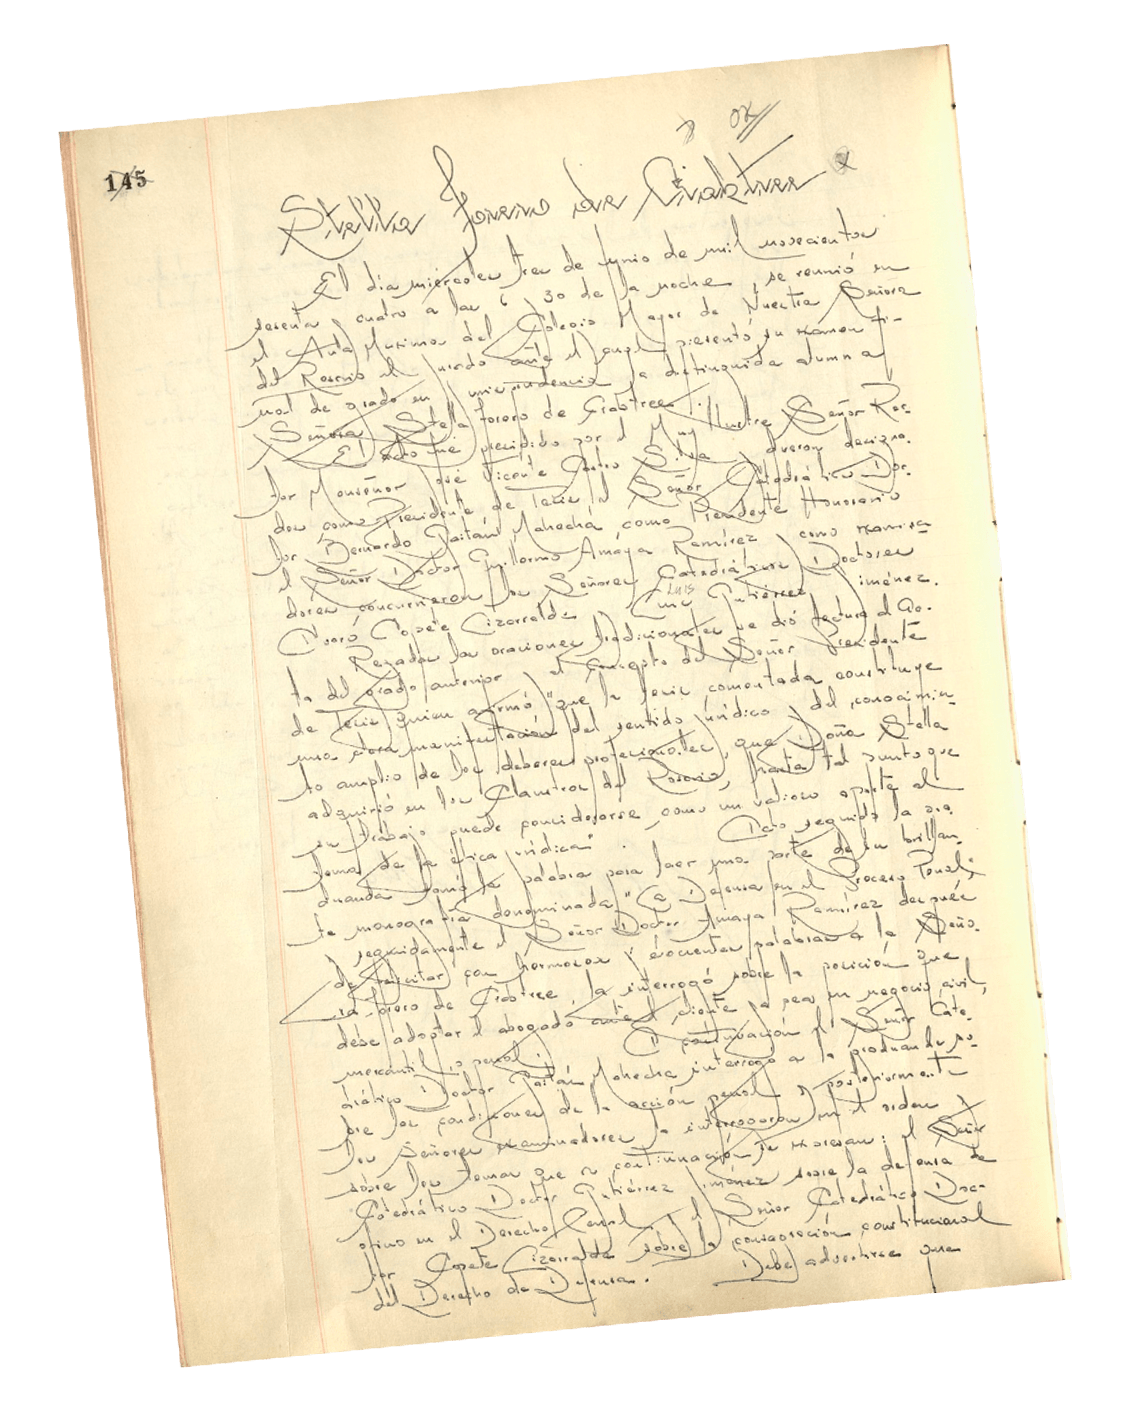 145
OK
Stella Forero de Crabtree
El día miércoles tres de Junio de mil novecientos
sesenta y cuatro a las 6 y 30 de la noche, se reunió en
el Aula Máxima del Colegio Mayor de Nuestra Señora
del Rosario el jurado ante el cual presentó su examen fi-
nal de grado en Jurisprudencia la distinguida alumna
Señora Stella Forero de Crabtree.
El acto fué presidido por el Muy Ilustre Señor Rec-
tor Monseñor José Vicente Castro Silva y fueron designa-
dos como Presidente de Tesis el Señor Catedrático Doc-
tor Bernardo Gaitán Mahecha como Presidente Honorario
el Señor Doctor Guillermo Amaya Ramírez y como examina-
dores concurrieron los Señores Catedráticos Doctores
Alvaro Copete Lizarralde y Luis Gutiérrez Jiménez.
Luis
Rezadas las oraciones tradicionales se dió lectura al Ac-
ta del grado anterior y el concepto del Señor Presidente
de Tesis quien afirmó "que la tesis comentada constituye
una clara manifestación del sentido jurídico y del conocimien-
to amplio de los deberes profesionales, que Doña Stella
adquirió en los Claustros del Rosario, hasta tal punto que
su trabajo puede considerarse como un valioso aporte al
tema de la ética jurídica". Acto seguido la gra-
duanda tomó la palabra para leer una parte de su brillan-
te monografía denominada "La Defensa en el Proceso Penal";
seguidamente el Señor Doctor Amaya Ramírez después
de felicitar con hermosas y elocuentes palabras a la Seño-
ra Forero de Crabtree, la interrogó sobre la posición que
debe adoptar el abogado ante el cliente ya sea en negocio civil,
mercantil o penal. A continuación el Señor Cate-
drático Doctor Gaitán Mahecha interrogó a la graduanda so-
bre las condiciones de la acción penal y posteriormente
los Señores examinadores la interrogaron en el orden y
sobre los temas que a continuación se expresan: el Señor
Catedrático Doctor Gutiérrez Jiménez sobre la defensa de
oficio en el Derecho Penal y el Señor Catedrático Doc-
tor Copete Lizarralde sobre la consagración constitucional
del Derecho de Defensa. Debe advertirse que